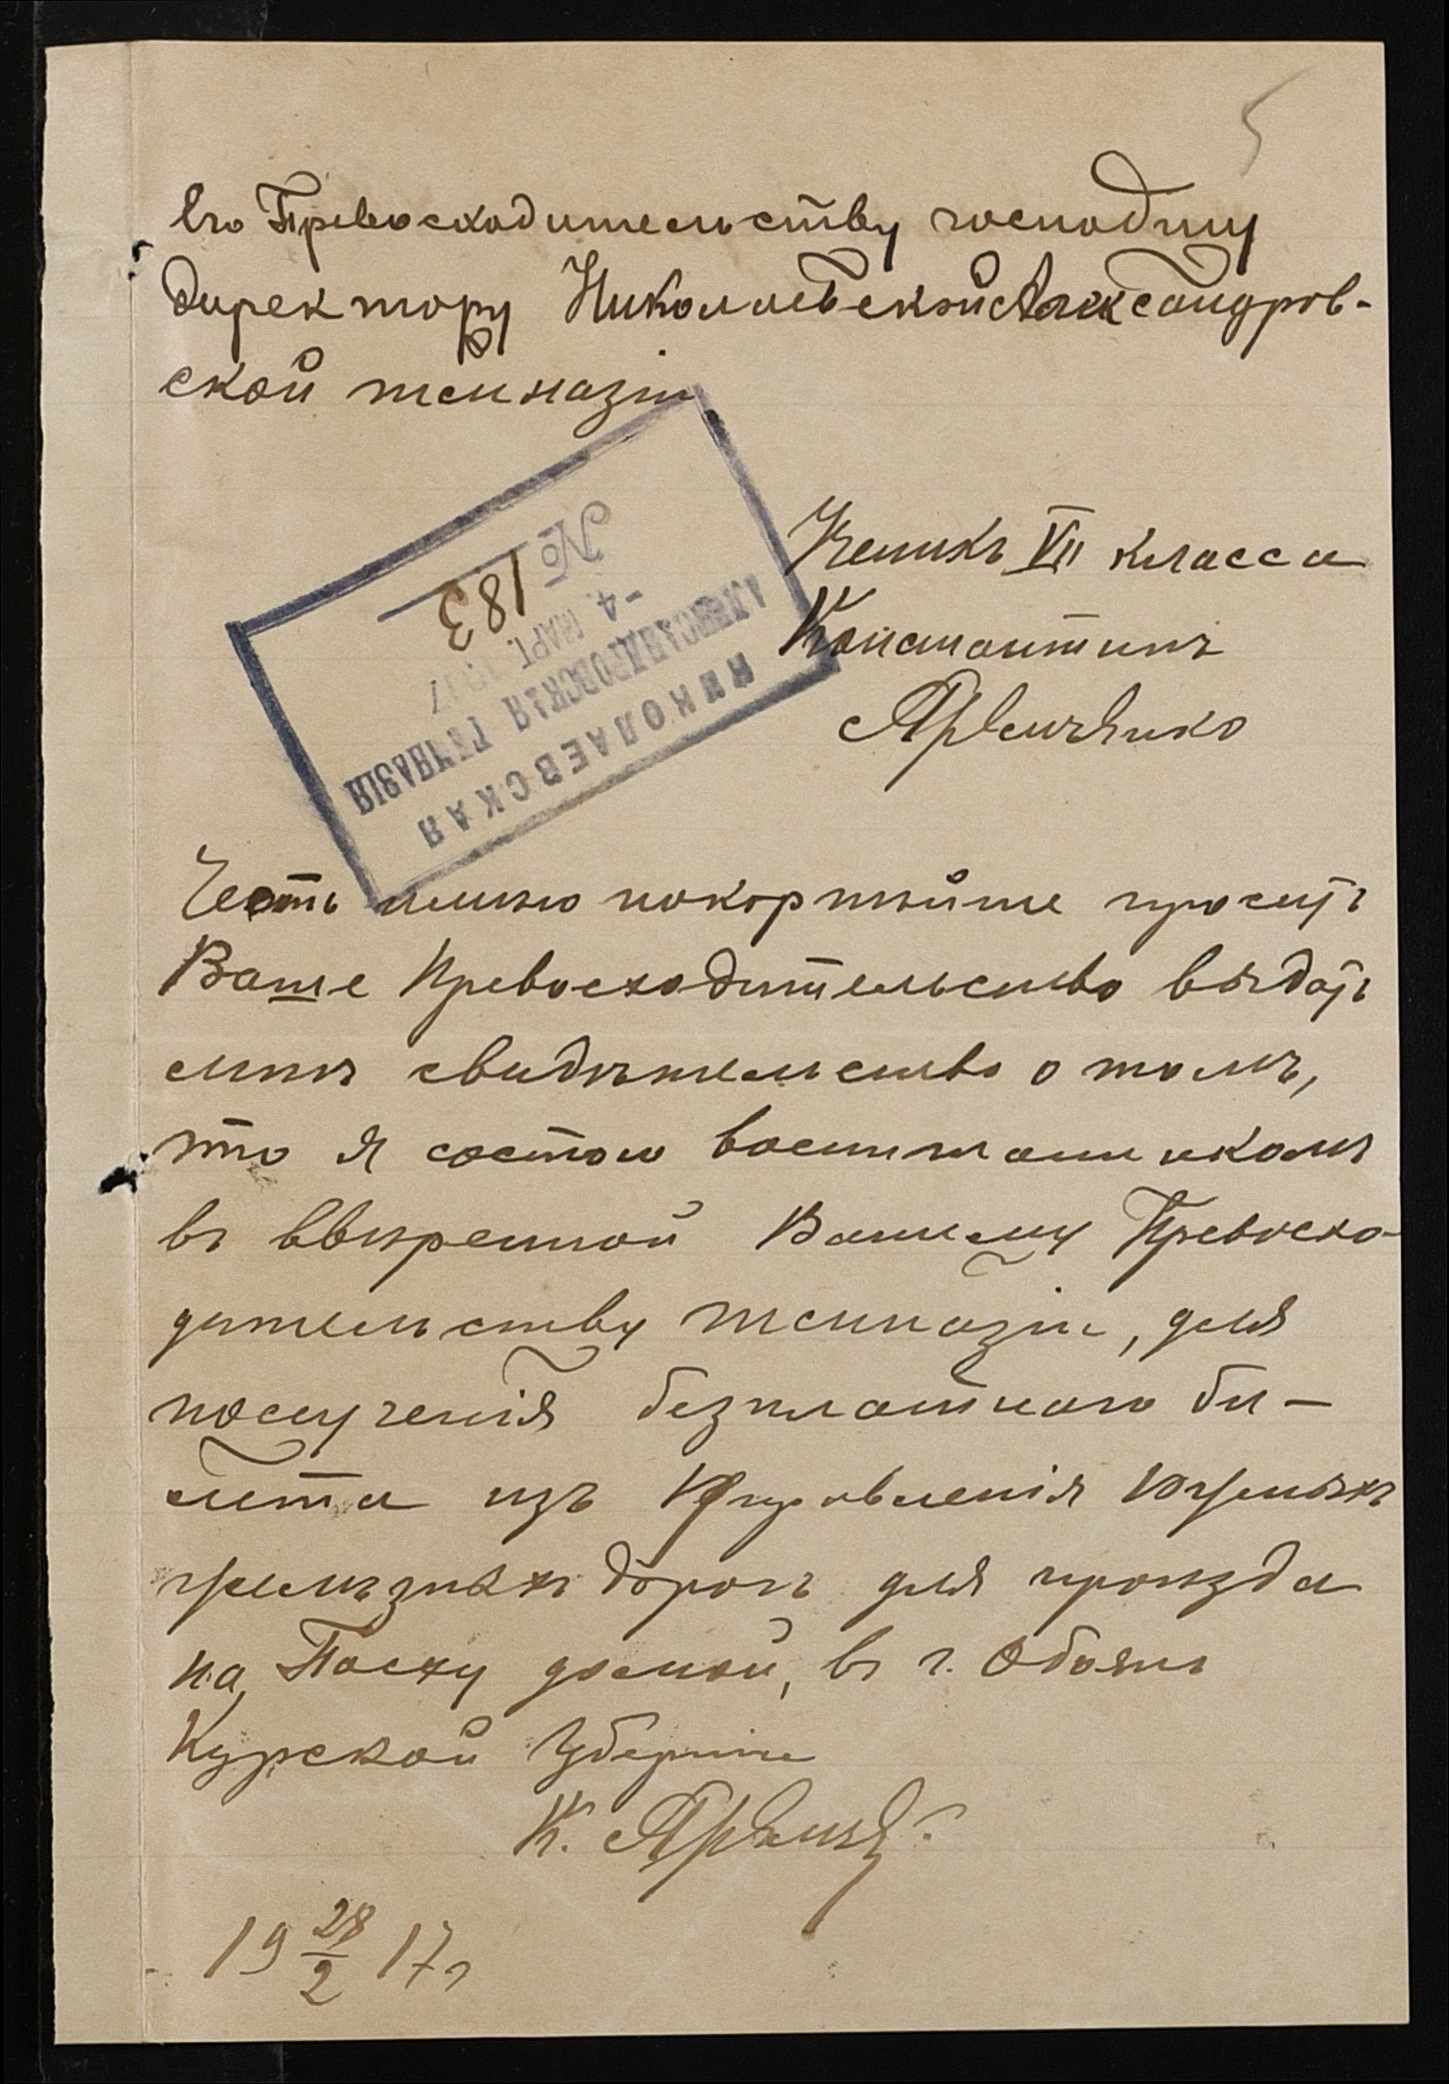 5
Его Превосходительству господину
директору Николаевской Александров-
ской гимназіи
№ 183
- 4. МАРТ. 1917
АЛЕКСАНДРОВСКАЯ ГИМНАЗІЯ
НИКОЛАЕВСКАЯ
Ученикъ VII класса
Константинъ
Честь имѣю покорнѣйше просить
Ваше Превосходительство выдать
мнѣ свидѣтельство о томъ,
что я состою воспитанникомъ
въ ввѣренной Вашему Превосхо-
дительству гимназіи, для
полученія безплатнаго би-
лета изъ Управленія Южныхъ
желѣзныхъ дорогъ для проѣзда
на Пасху домой, въ г. Обоянь
Курской губерніи
К.
19 28/2 17 г